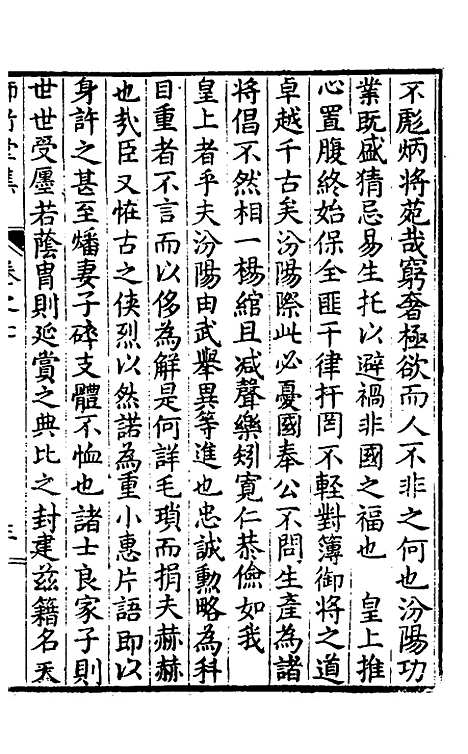 不彪炳將苑哉窮奢極欲而人不非之何也汾陽功
業既盛猜忌易生托以避禍非國之福也　皇上推
心置腹終始保全匪干律扞罔不輕對簿御將之道
卓越千古矣汾陽際此必憂國奉公不問生產為諸
將倡不然相一楊綰且减聲樂矧寬仁恭儉如我
皇上者乎夫汾陽由武舉異等進也忠誠勲略為科
目重者不言而以侈為解是何詳毛瑣而捐夫赫赫
也㢤臣又恠古之俠烈以然諾為重小惠片語即以
身許之甚至燔妻子碎支體不恤也諸士良家子則
世世受廛若蔭胄則延賞之典比之封建兹籍名天
卷之十